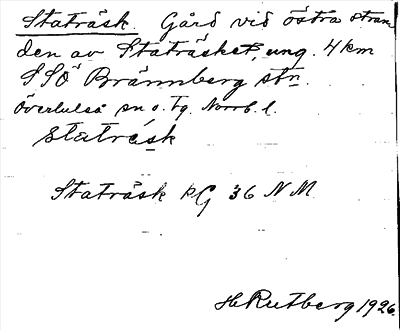 Staträsk. Gård vid östra stran
den av Staträsket, ung. 4 km
SSÖ Brännberg stn.
Överluleå sn o. tg. Norrb. l.
staträsk
Staträsk kG 36 NM
H Rutberg 1926.